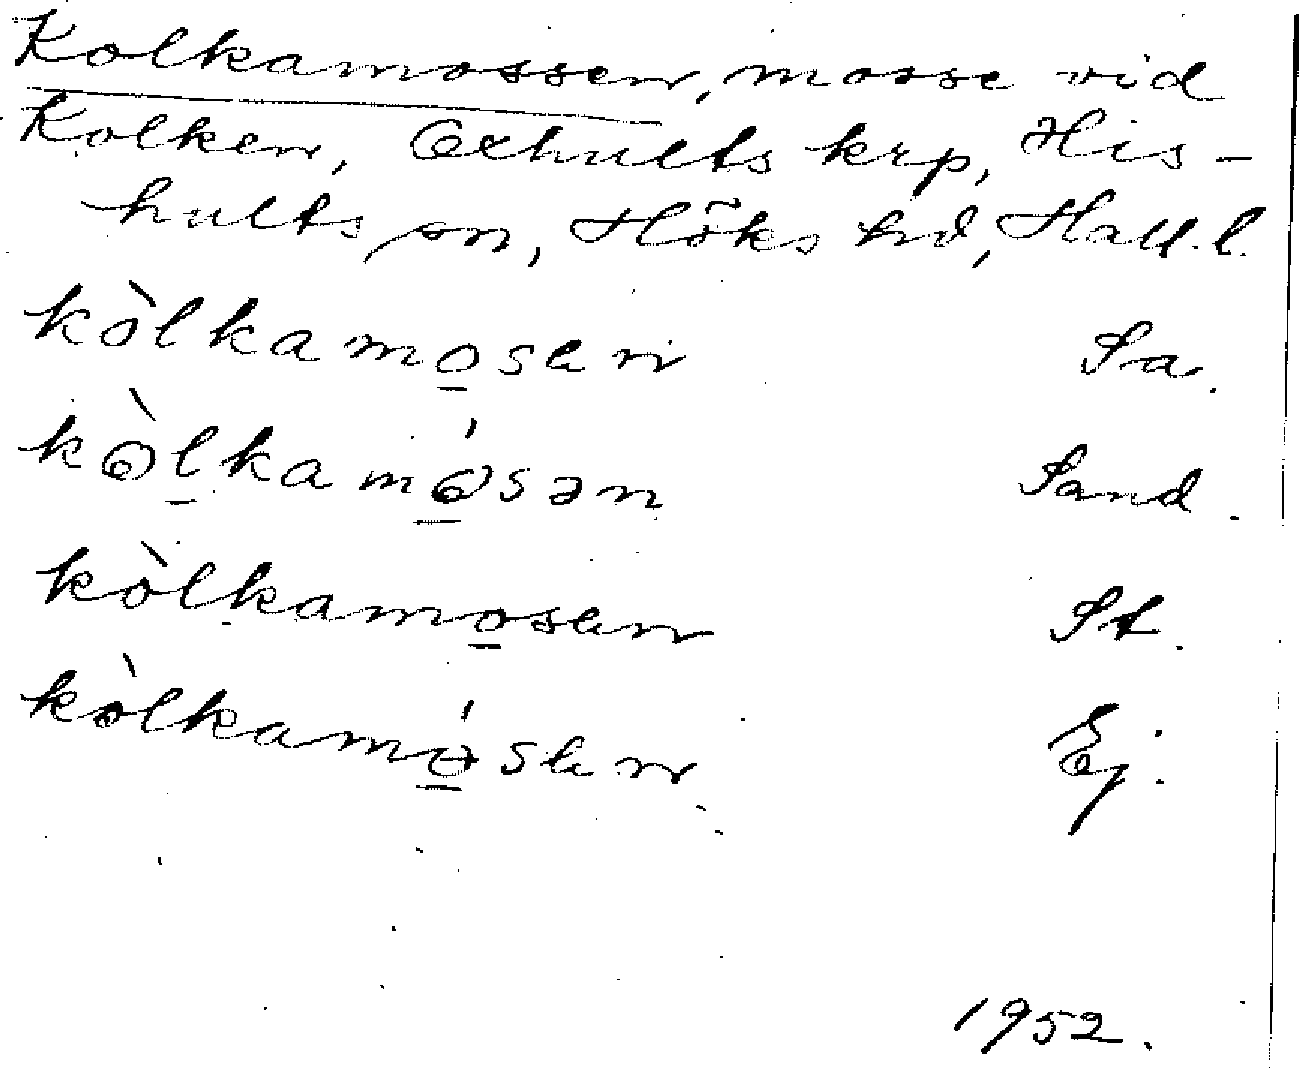 Kolkamossen, mosse vid
Kolken, Oxhults krp, His-
hults sn, Höks hd, Hall. l.
kòlkamo̲sen Sa.
kòl̲kamó̲sən Sand.
kòlkamo̲sen St.
kòlkamó̲sen Ej.
1952.